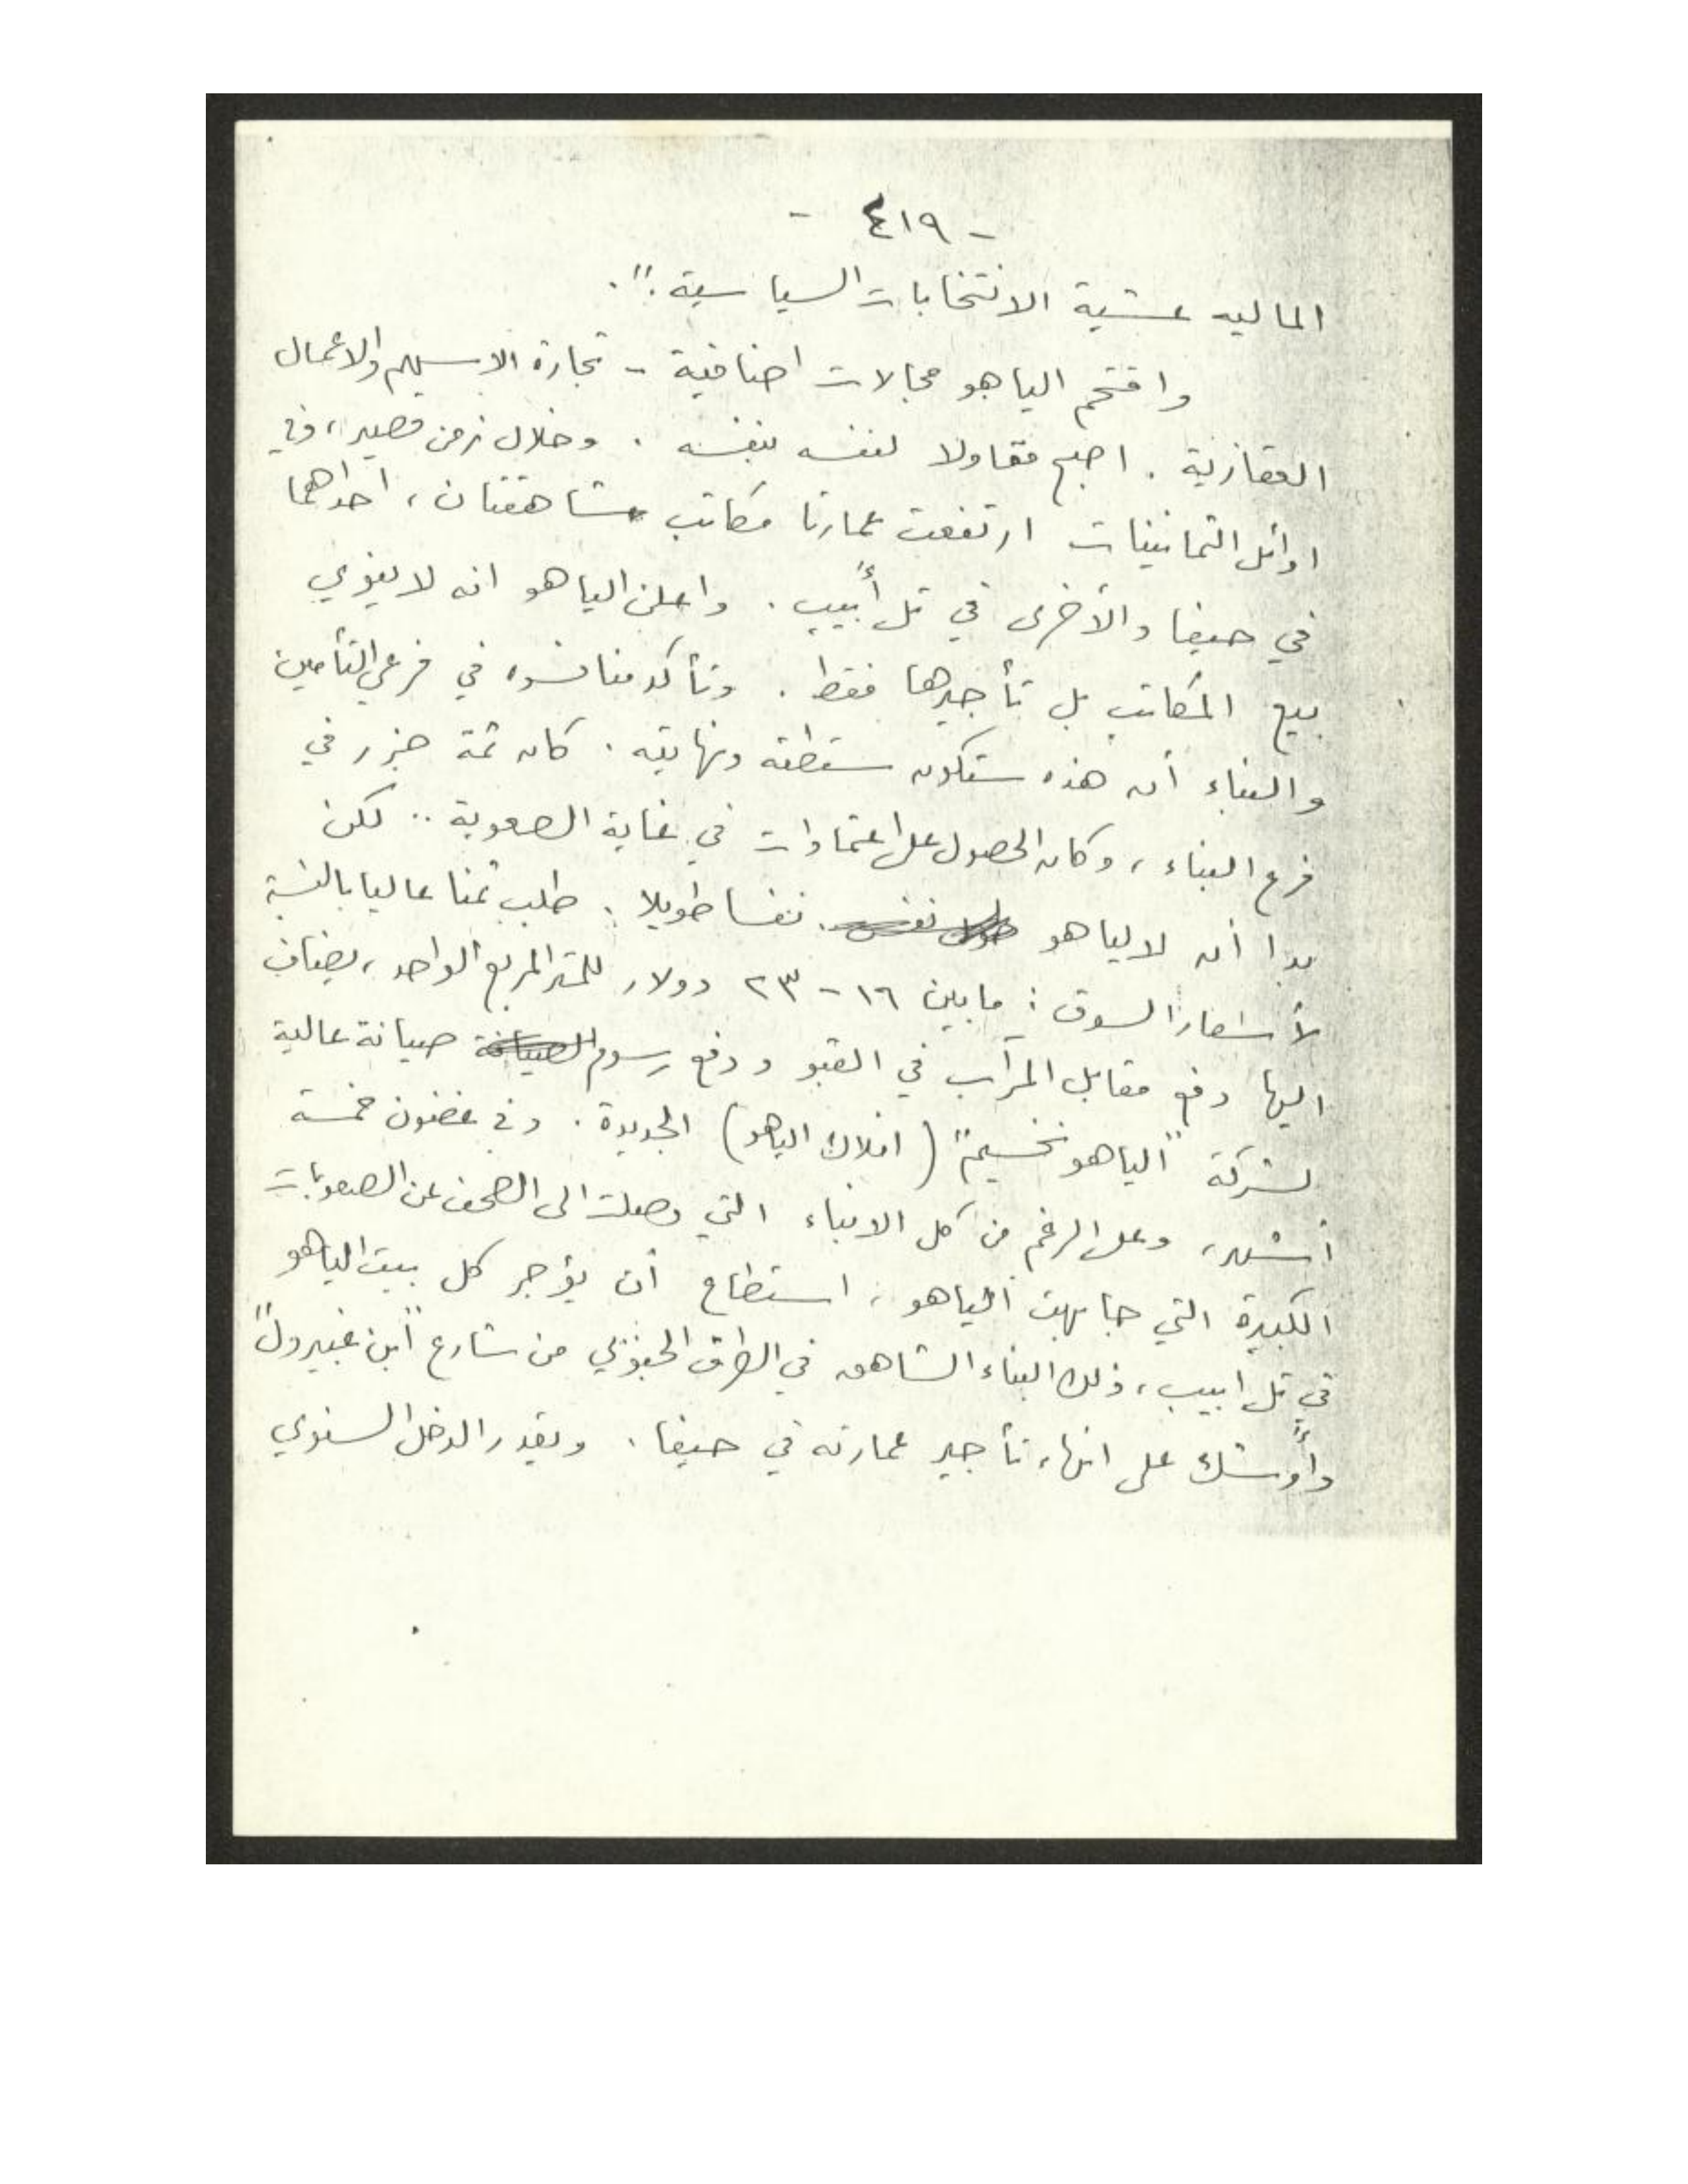 - ٤١٩ -
الماليه عشية الانتخابات السياسية .".
واقتحم الياهو مجالات اضافية - تجارة الاسهم والاعمال
العقارية . اصبح مقاولا لنفسه بنفسه . وخلال زمن قصير، في
اوائل الثمانينات ارتفعت عمارتا مكاتب شاهقتان ، احداهما
في حيفا والأخرى في تل أبيب . واعلن الياهو انه لا ينوي
بيع المكاتب بل تأجيرها فقط . وتأكد منافسوه في فرعي التأمين
والبناء أن هذه ستكون سقطته ونهايته . كان ثمة جزر في
فرع البناء ، وكان الحصول على اعتمادات في غاية الصعوبة .. لكن
بدا أن لالياهو نفسا طويلا . طلب ثمنا عاليا بالنسبة
لأسعار السوق : ما بين ١٦ - ٢٣ دولار للمتر المربع الواحد ، يضاف
اليها دفع مقابل المرآب في القبو ودفع رسوم صيانة عالية
لشركة "الياهو نخسيم" ( املاك الياهو) الجديدة . وفي غضون خمسة
أشهر، وعلى الرغم من كل الانباء التي وصلت الى الصحف عن الصعوبات
الكبيرة التي جابهت الياهو ، استطاع أن يؤجر كل بيت الياهو
في تل ابيب ، ذلك البناء الشاهق في الطرف الجنوبي من شارع "ابن غبيرول"
وأوشك على انهاء تأجير عمارته في حيفا . ويقدر الدخل السنوي